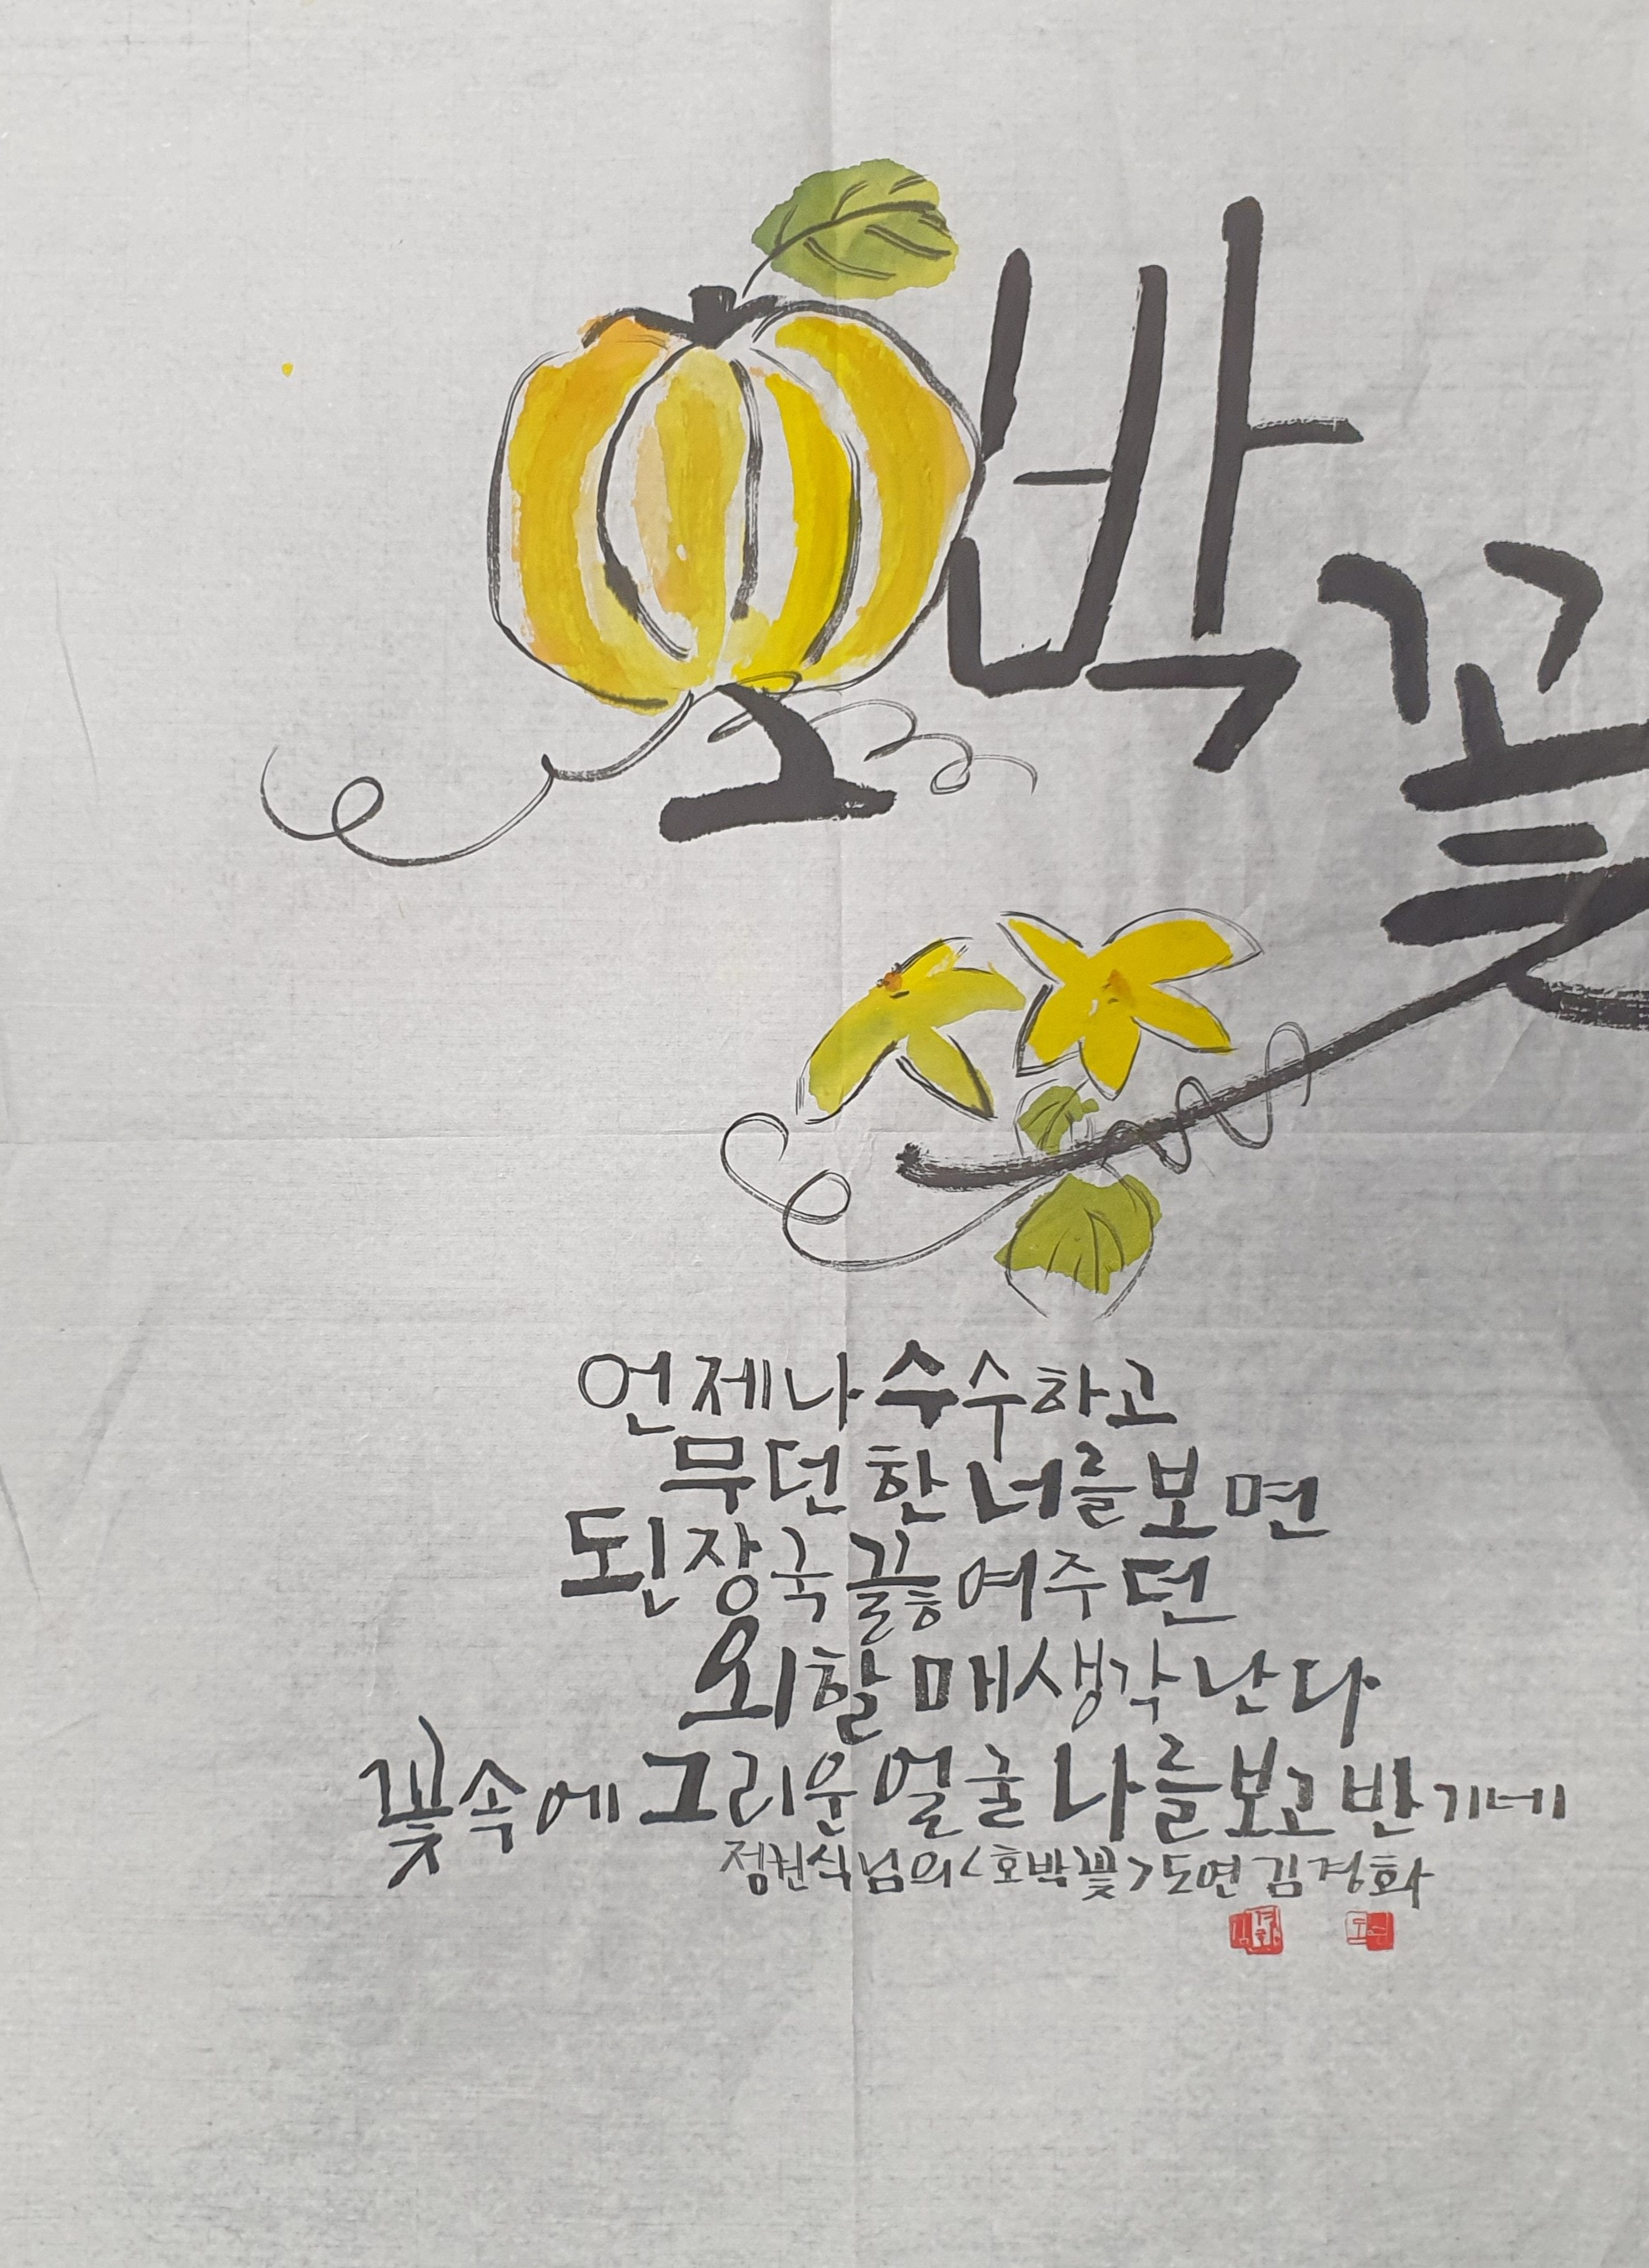 호박꽃
언제나 수수하고
무던한 너를 보면
된장국 끓여주던
외할매 생각난다
꽃속에 그리운 얼굴 나를 보고 반기네
정권식님의 <호박꽃> 도연 김경화
김경화 도연